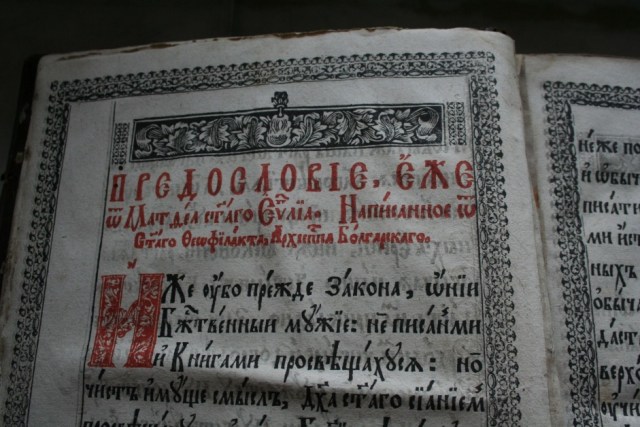 Предословіе, є́же
ѿ Матѳеа ст҃аго Єѵ҃лїа. Написанное ѿ
Ст҃аго Ѳеоѳіла́кта, Архїеп҃па Болга́рскаго.
И́же ᲂу҆́бо пре́жде Зако́на, ѡ҆нїи
Бж҃твенныи мꙋ́жїе: не писа́нми
и҆ Кни́гами просвѣща́хꙋсѧ: но
чи́стъ и҆мꙋ́ще смы́слъ, Дх҃а ст҃а́го сїѧ́нїем
не́же по
и҆ ѡ҆бы́ча
писа́ти
ми и҆ст
ны́хъ
ѡ҆быча
даст
верхо